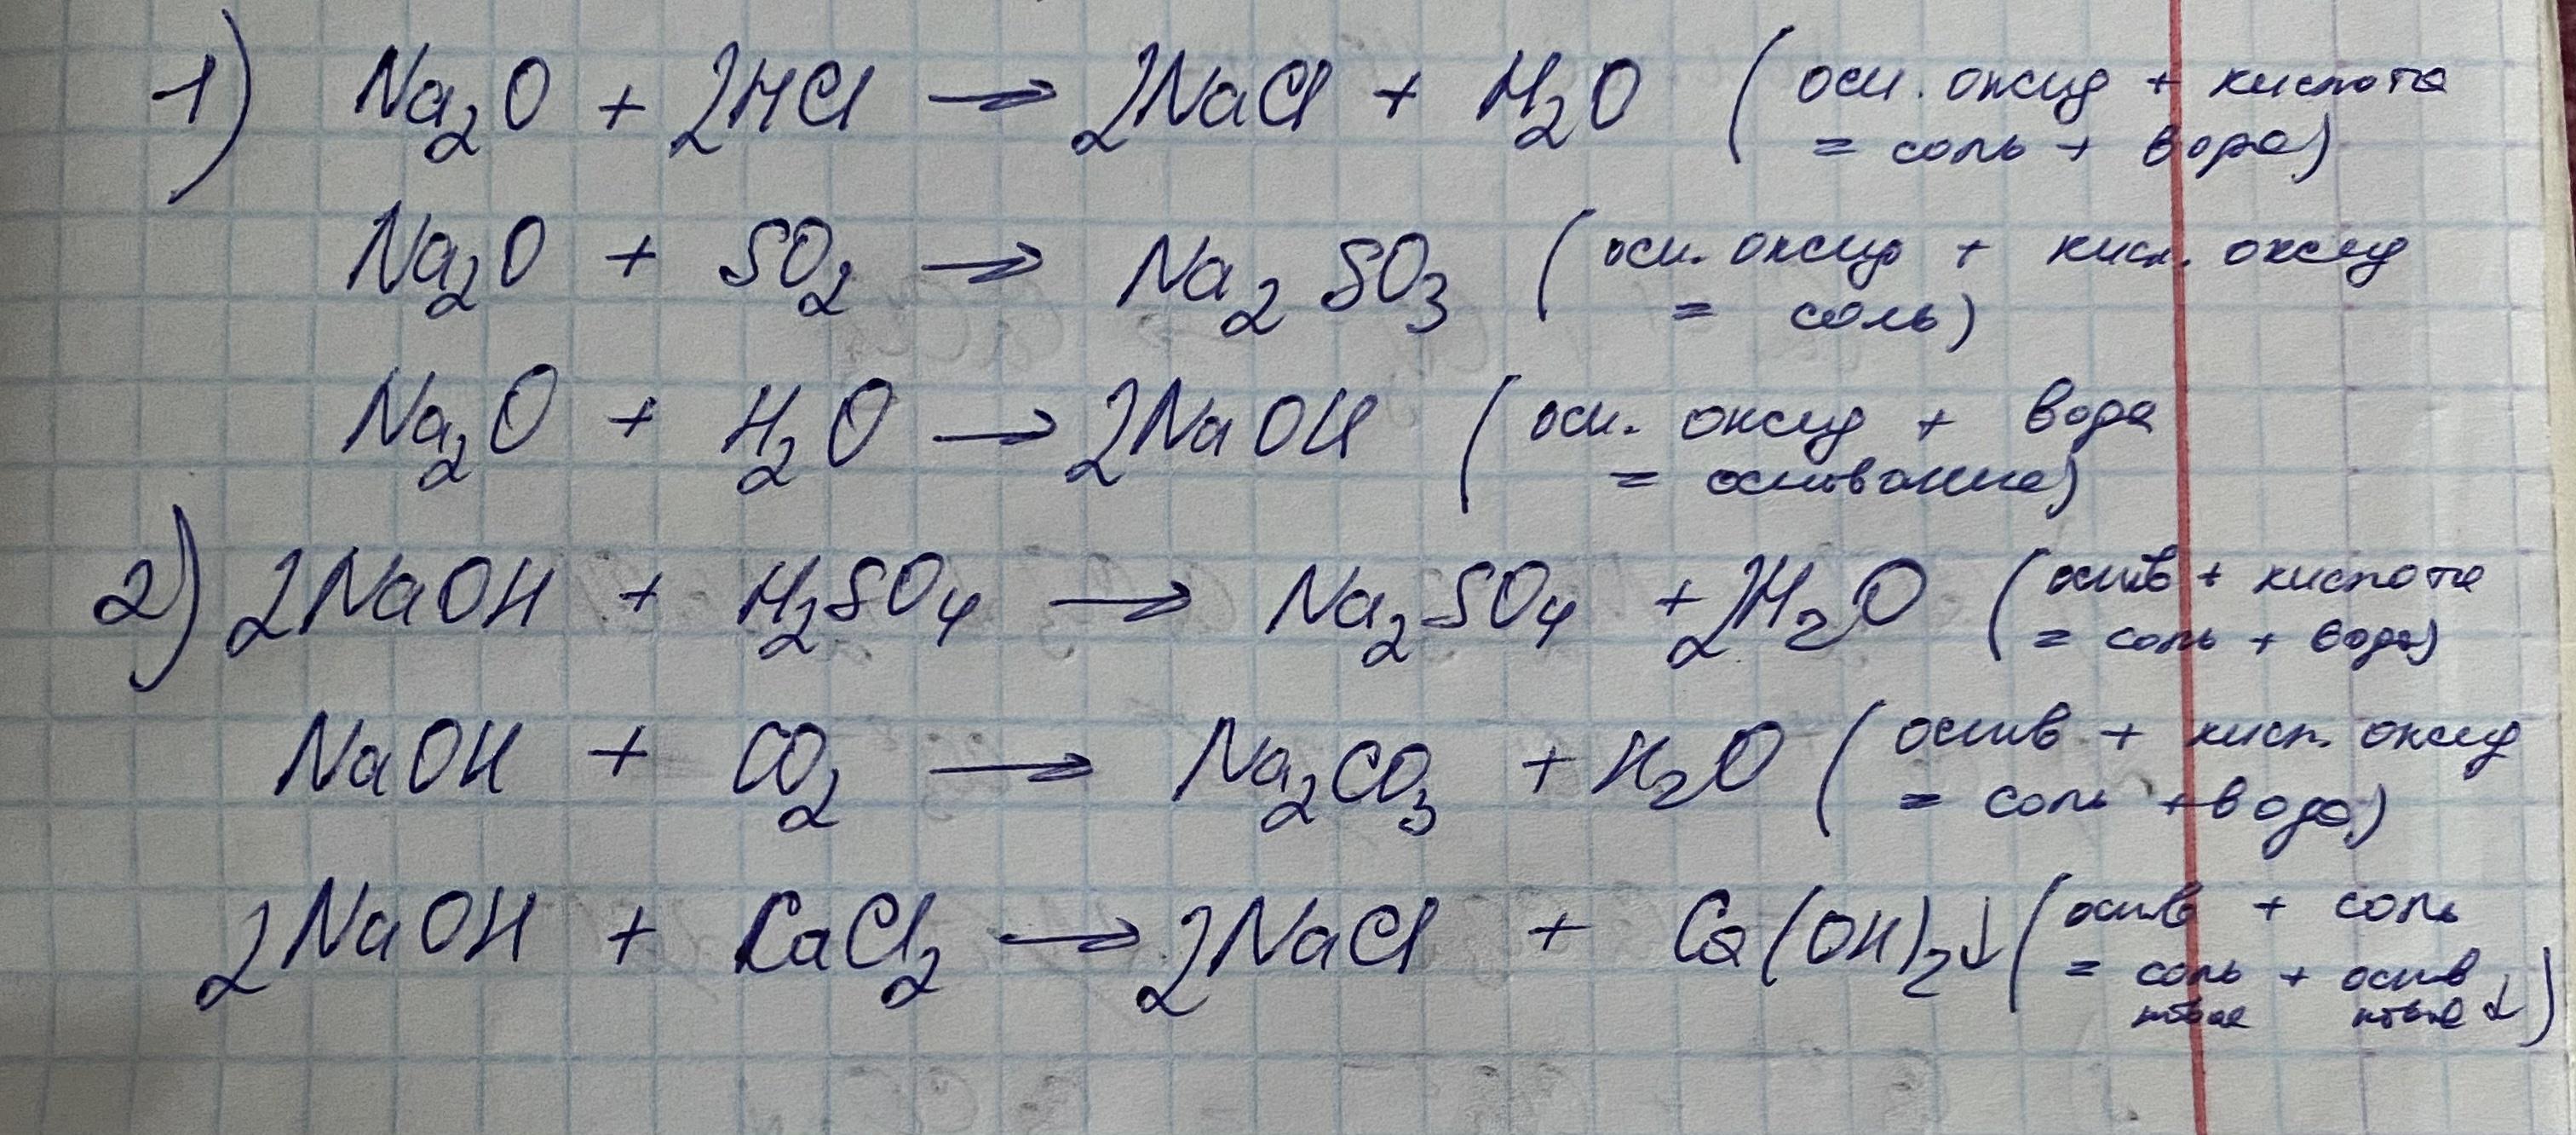 1) Na₂O + 2HCl → 2NaCl + H₂O (осн. оксид + кислота
= соль + вода)
Na₂O + SO₂ → Na₂SO₃ (осн. оксид + кисл. оксид
= соль)
Na₂O + H₂O → 2NaOH (осн. оксид + вода
= основание)
2) 2NaOH + H₂SO₄ → Na₂SO₄ + 2H₂O (оснв + кислота
= соль + вода)
NaOH + CO₂ → Na₂CO₃ + H₂O (оснв + кисл. оксид
= соль + вода)
2NaOH + CaCl₂ → 2NaCl + Ca(OH)₂↓ (оснв + соль
= соль + оснв
новая новое ↓)